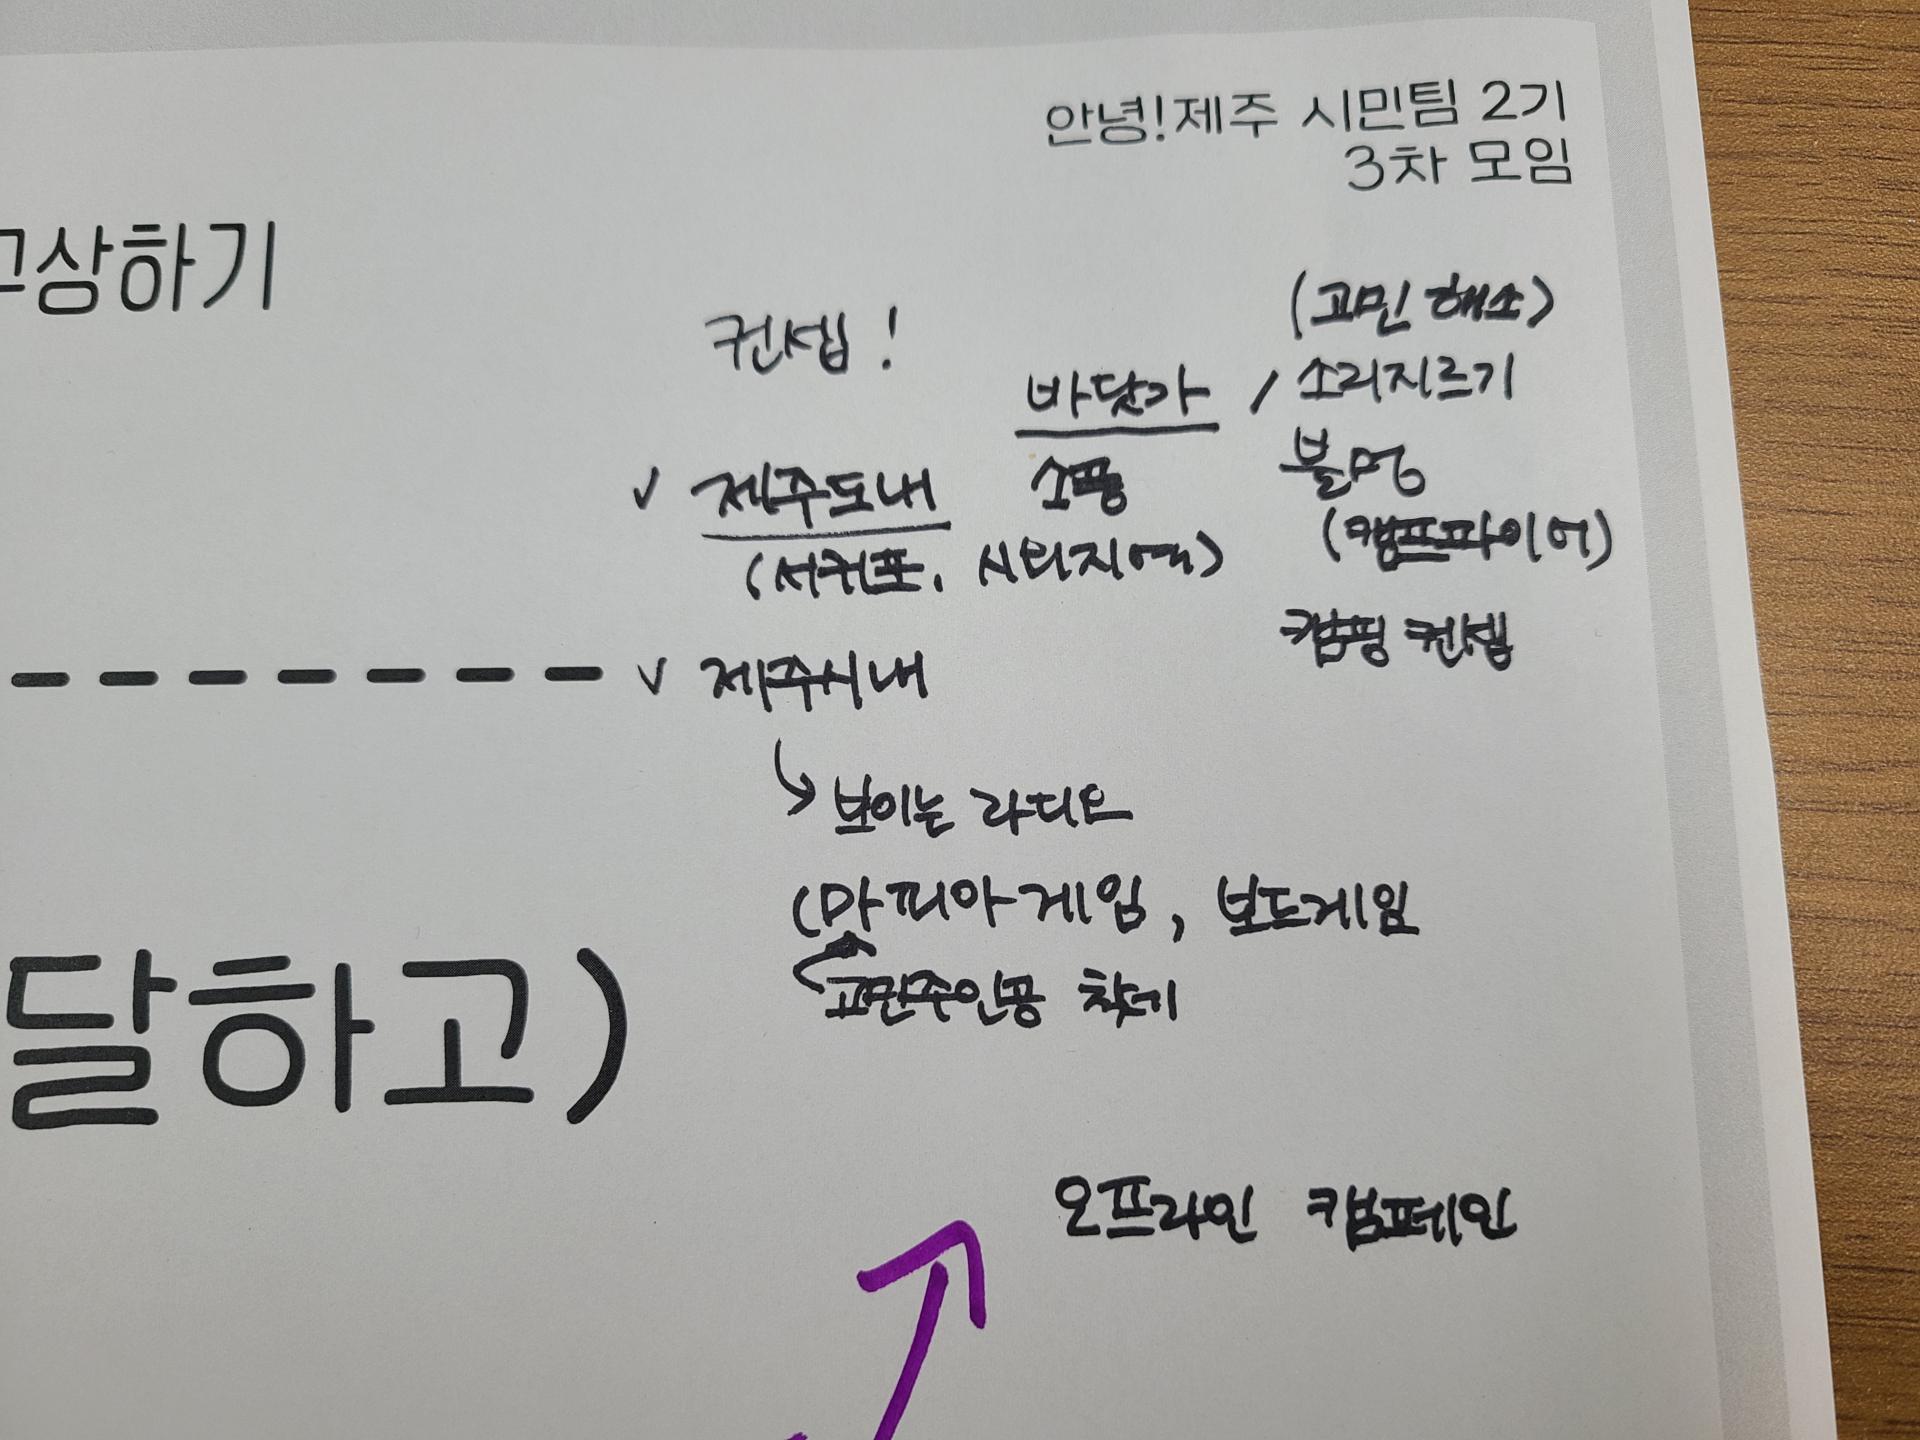 안녕!제주 시민팀 2기
3차 모임
구상하기
컨셉!
(고민 해소)
바닷가 / 소리지르기
✓ 제주도내 소풍 불멍
(서귀포, 시외지역) (캠프파이어)
캠핑 컨셉
✓ 제주시내
↳ 보이는 라디오
(마피아게임, 보드게임
고민주인공 찾기
달하고)
오프라인 캠페인